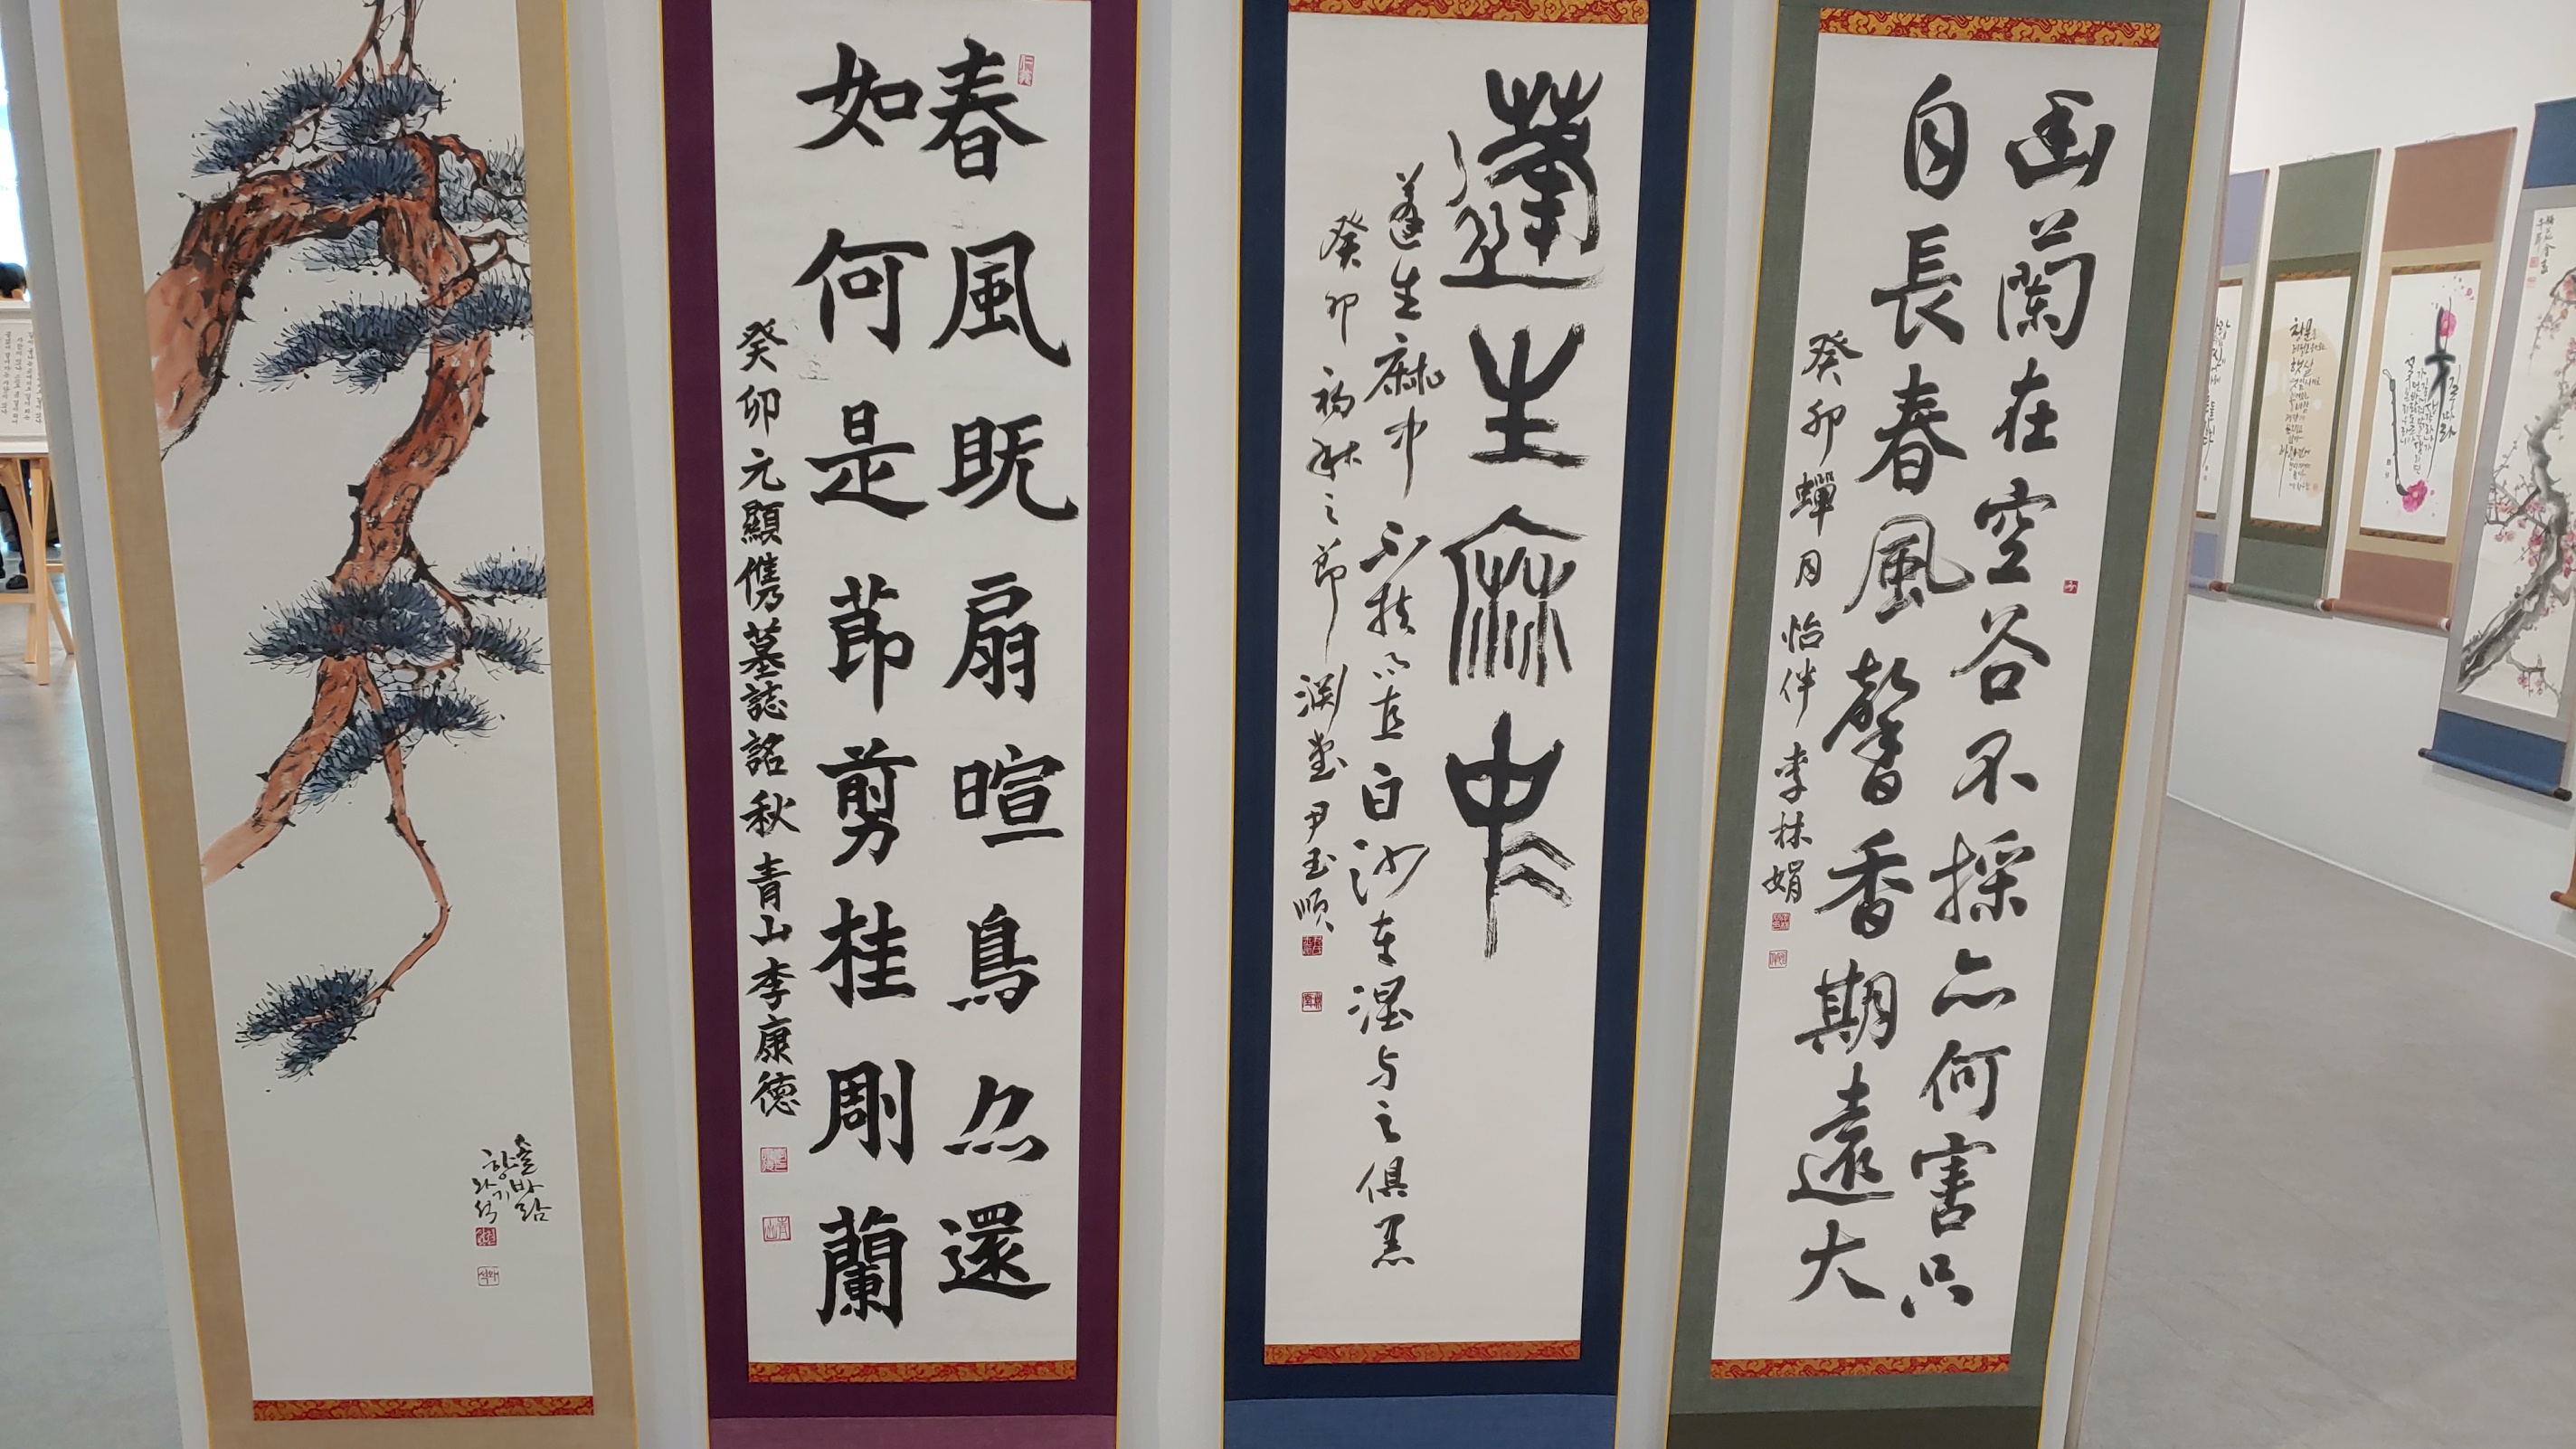 幽蘭在空谷不採亦何害只
自長春風馨香期遠大
癸卯蟬月怡伴 李林娟
蓬生麻中
蓬生麻中不扶而直白沙在涅与之俱黑
癸卯初秋之節 淵堂尹玉順
春風既扇暄鳥亦還
如何是莭剪桂剛蘭
癸卯元顯儁墓誌銘秋 青山李康德
솔바람
향기
와석